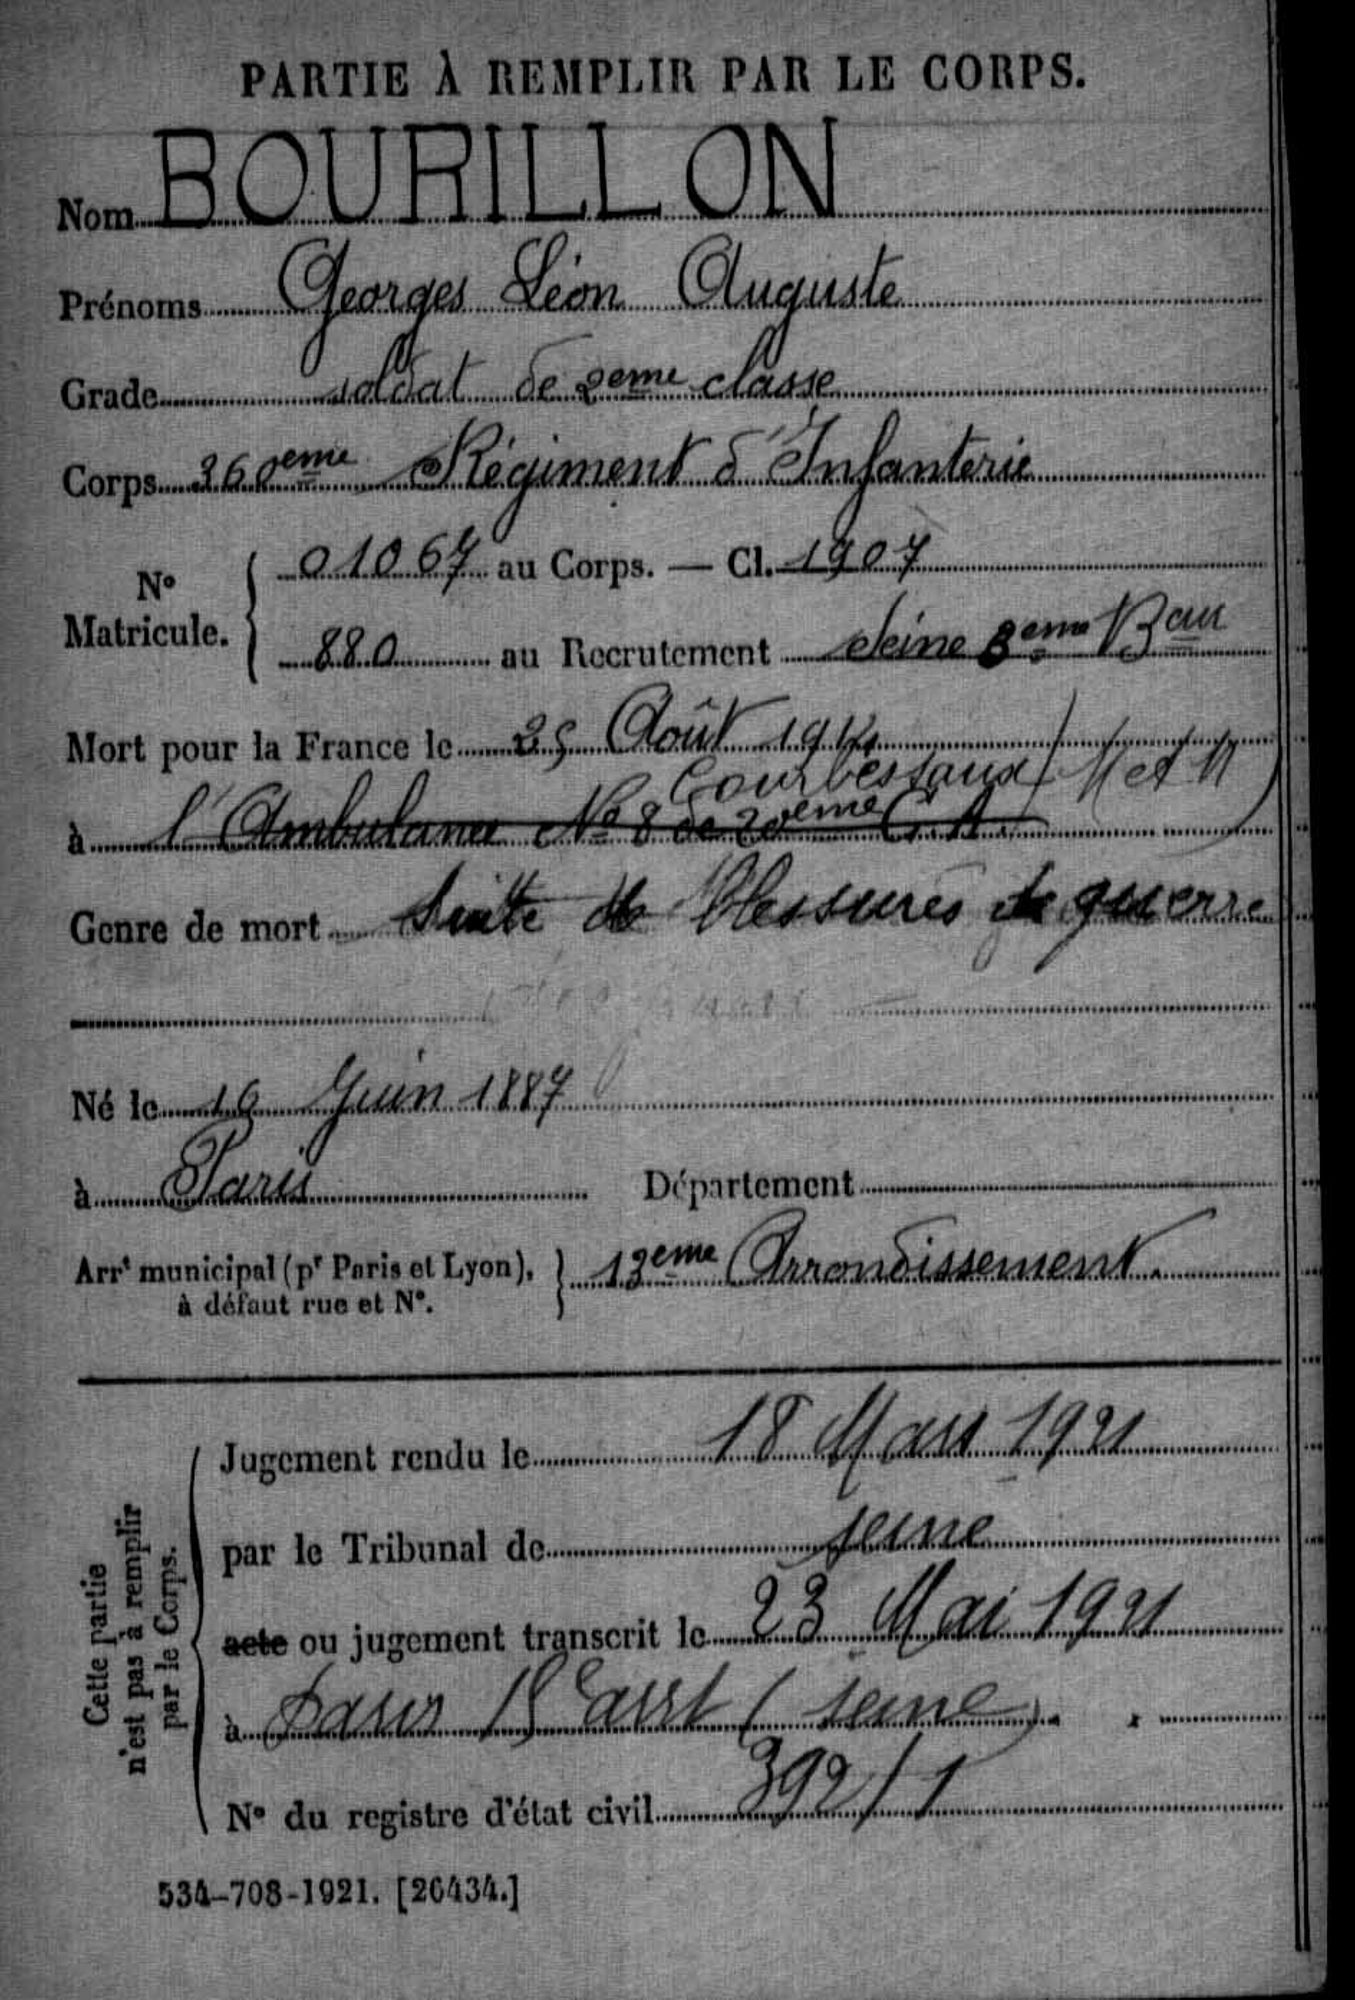 PARTIE À REMPLIR PAR LE CORPS.
Nom BOURILLON
Prénoms Georges Léon Auguste
Grade soldat de 2eme classe
Corps 360eme Régiment d'Infanterie
N° Matricule. 01067 au Corps. — Cl. 1907
880 au Recrutement Seine 3eme Bau
Mort pour la France le 25 Août 1914
Courbessaux (M et M)
à l'Ambulance N° 8 de 20eme C. A.
Genre de mort Suite de blessures de guerre
Né le 16 Juin 1887
à Paris Département
Arrt municipal (pr Paris et Lyon), 13eme Arrondissement.
à défaut rue et N°.
Cette partie
n'est pas à remplir
par le Corps.
Jugement rendu le 18 Mars 1921
par le Tribunal de Seine
acte ou jugement transcrit le 23 Mai 1921
à Paris arrt (Seine).
N° du registre d'état civil 392/1
534-708-1921. [26434.]